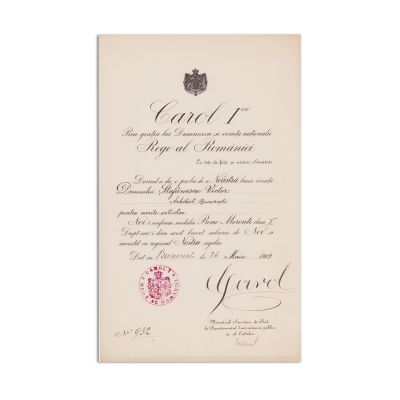 Carol I
Prin grația lui Dumnezeu și voința națională
Rege al României
La toți de față și viitori Sănătate.
Dorind a da o probă de a Noastră bună voință
Domnului Ștefănescu Victor
Arhitect, București
pentru merite artistice
Noi 'i conferim medalia Bene Merenti clasa I
Drept care i dăm acest brevet subscris de Noi și
investit cu regescul Nostru sigiliu.
Dat în București la 26 Maiu 1909
CAROL I
REGE AL ROMANIEI
Carol
Ministrul Secretar de Stat
la Departamentul Instrucțiunii publice
și al Cultelor
No. 932